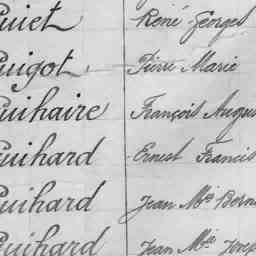 uiet René Georges
uigot Pierre Marie
uihaire François Augus
uihard Ernest Francis
uihard Jean Mie Bern
uihard Jean Mie Josep